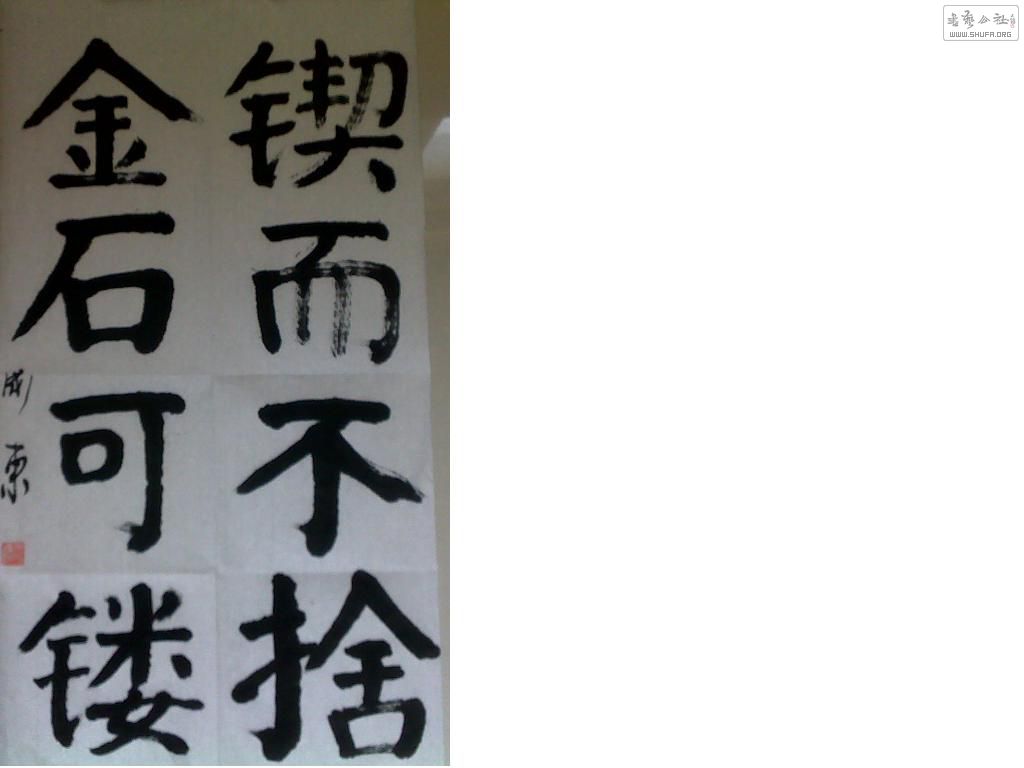 锲而不捨
金石可镂
成東
书艺公社
WWW.SHUFA.ORG